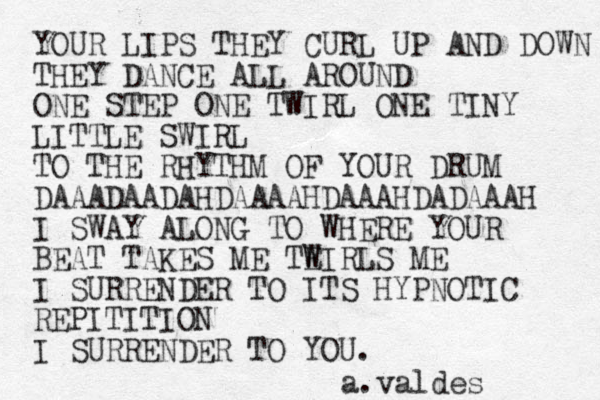 YOUR LIPS THEY CURL UP AND DOWN
THEY DANCE ALL AROUND
ONE STEP ONE TWIRL ONE TINY
LITTLE SWIRL
TO THE RHYTHM OF YOUR DRUM
DAAADAADAHDAAAAHDAAAHDADAAAH
I SWAY ALONG TO WHERE YOUR
BEAT TAKES ME TWIRLS ME
I SURRENDER TO ITS HYPNOTIC
REPITITION
I SURRENDER TO YOU.
a.valdes